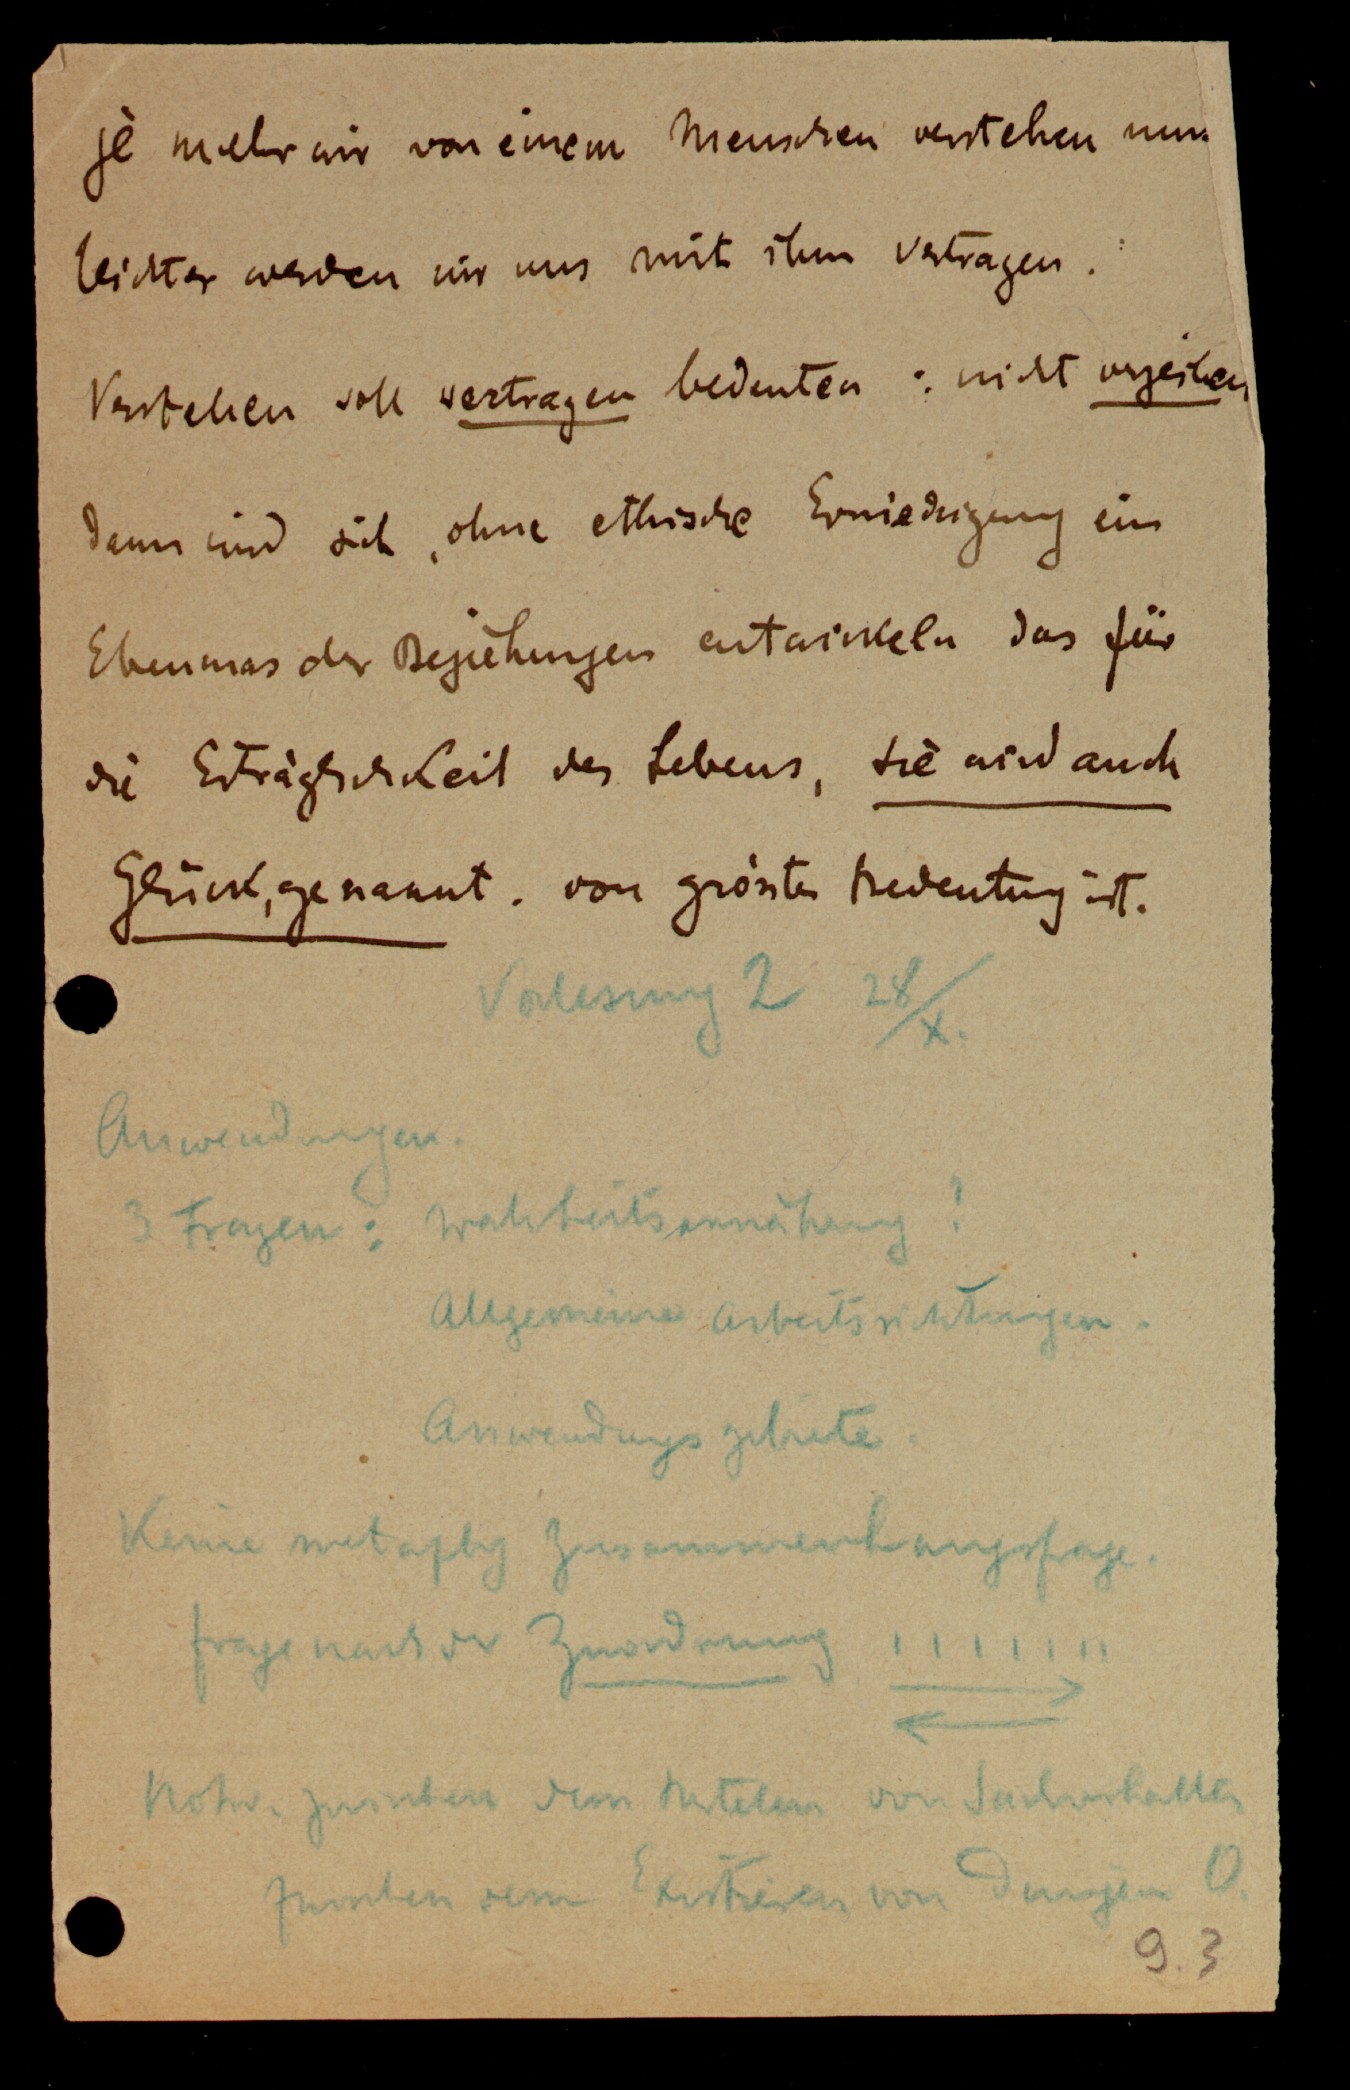 je mehr wir von einem Menschen verstehen um
leichter werden wir uns mit ihm vertragen.
Verstehen soll vertragen bedeuten: nicht verzeihen
dann wird sich, ohne ethische Erniedrigung ein
Ebenmas der Beziehungen entwickeln das für
die Erträglichkeit des Lebens, sie wird auch
Glück, genannt. von gröster Bedeutung ist.
Vorlesung 2 28/X.
Anwendungen.
3 Fragen: Wahrheitsannäherung!
Allgemeine Arbeitsrichtungen.
Anwendungsgebiete.
Keine metaphy Zusammenhangsfrage.
frage nach der Zuordnung
zwischen dem Bestehen von Sachverhalten
zwischen dem Existieren von Dingen
9.3